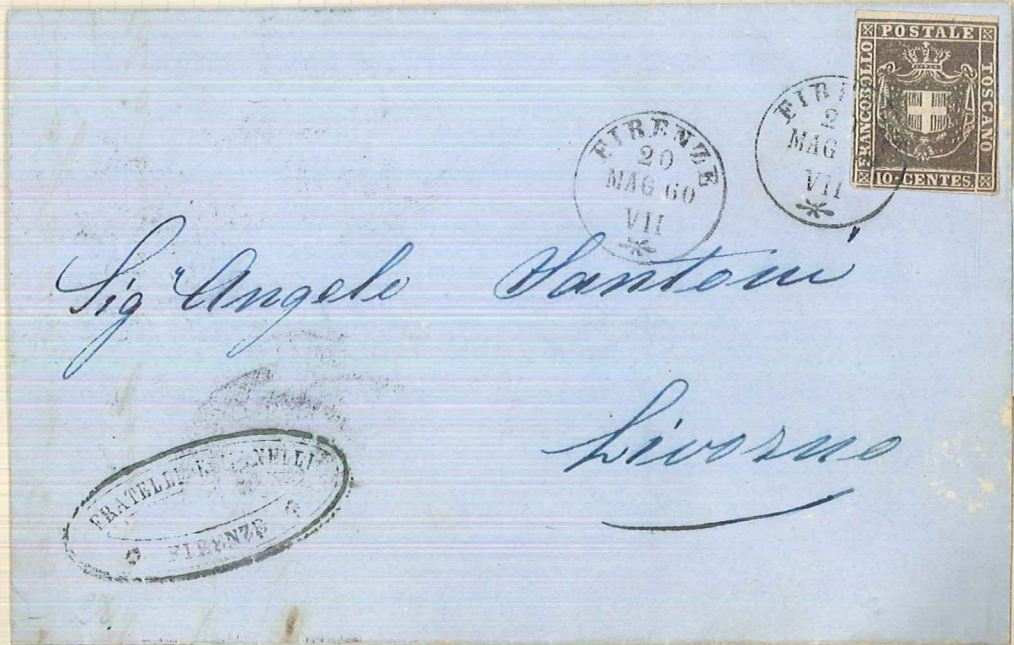 FRANCOBOLLO POSTALE TOSCANO
10·CENTES.
FIRENZE
20
MAG 60
VII
FIR
2
MAG
VII
Sig.r Angelo Santoni
Livorno
FRATELLI
FIRENZE